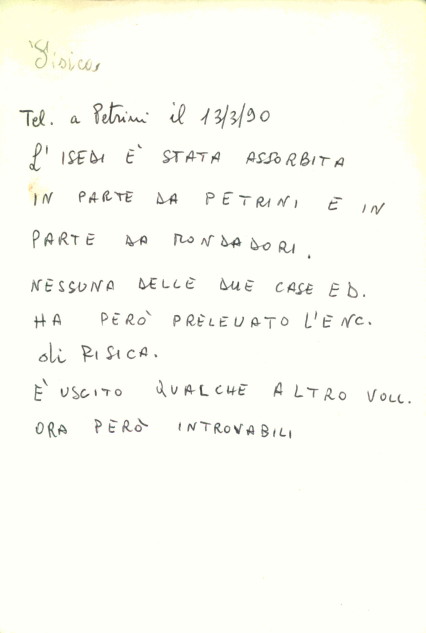 Fisica
Tel. a Petrini il 13/3/90
L'ISEDI È STATA ASSORBITA
IN PARTE DA PETRINI E IN
PARTE DA MONDADORI.
NESSUNA DELLE DUE CASE ED.
HA PERÒ PRELEVATO L'ENC.
di FISICA.
È USCITO QUALCHE ALTRO VOLL.
ORA PERÒ INTROVABILI